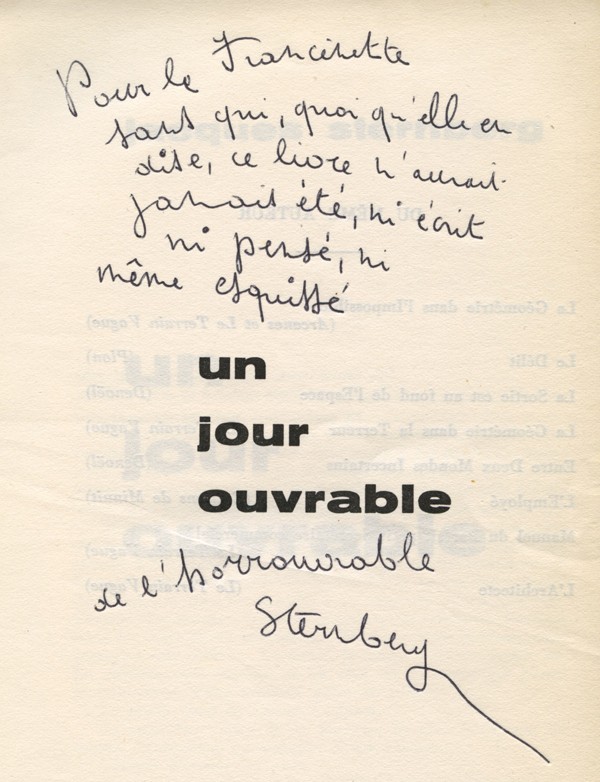 Pour la Francinette
sans qui, quoi qu'elle en
dise, ce livre n'aurait
jamais été, ni écrit
ni pensé, ni
même esquissé
un
jour
ouvrable
de l'horrouvrable
Sternberg